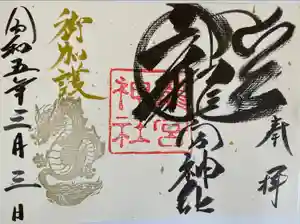 奉拝
龍宮神社
龍宮神社
御加護
令和五年三月三日